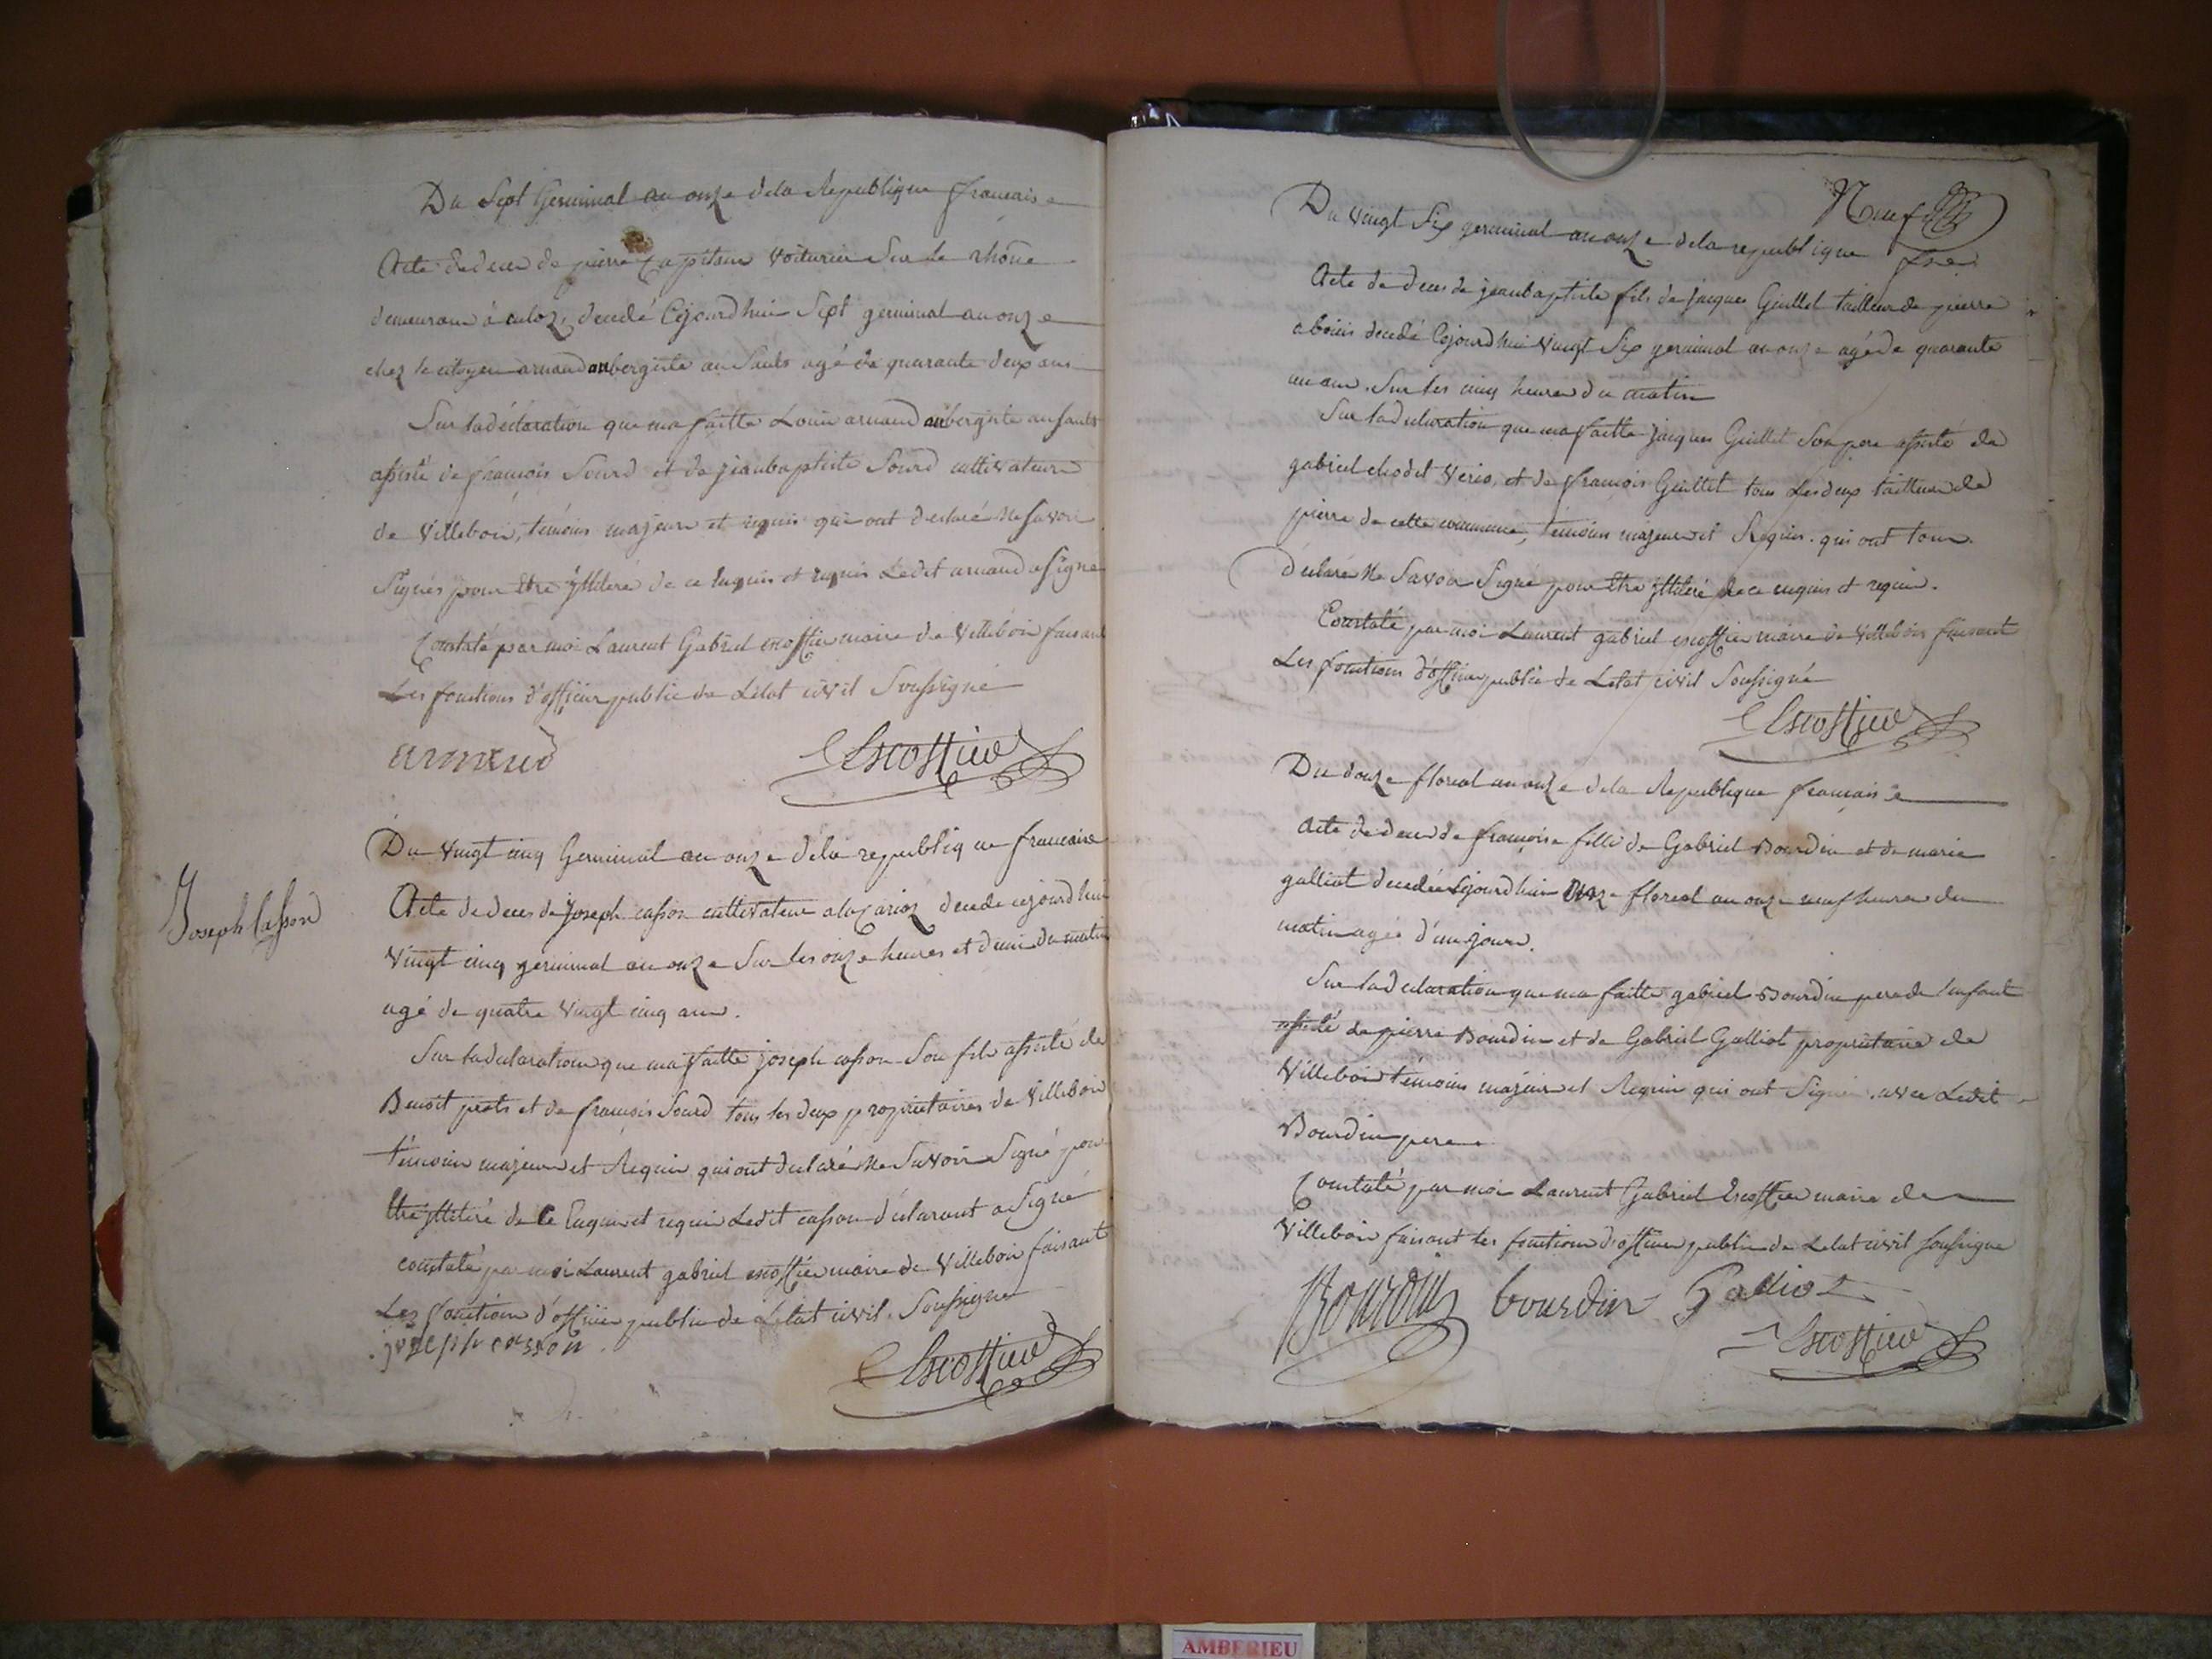 Du Sept Germinal an onze dela Republique francaise
Acte dedeces de pierre Capitane Voiturier Sur le rhône
demeurant à culoz, decedé Cejourdhui Sept germinal an onze
chez le citoyen arnaud aubergiste au Saults agé de quarante deux ans
Sur la déclaration que ma faitte Louis arnaud aubergiste au saults
assisté de francois Sourd et de jeanbaptiste Sourd cultivateurs
de Villebois, témoins majeurs et requis qui ont declaré ne savoir
Signés pour être jlliteré de ce enquis et requis Ledit arnaud a signe
Constaté par moi Laurent Gabriel escoffier maire de Villebois faisant
Les fonctions d'officier public de Létat civil Soussigné
arnaud
Escoffier
Joseph Casson
Du Vingt cinq Germinal an onze déla republique francaise
Acte de deces de Joseph casson cultivateur a decede cejourdhui
Vingt cinq germinal an onze Sur les onze heures et demi du matin
agé de quatre Vingt cinq ans.
Sur la declaration que ma faitte joseph casson Son fils assisté de
Benoit et de françois Sourd tous les deux proprietaires de Villebois
témoins majeurs et Requis qui ont declaré ne Savoir Signé pour
être jlliteré de ce Enquis et requis Ledit casson déclarant a Signé
constaté par moi Laurent gabriel escoffier maire de Villebois faisant
Les fonctions d'officier public de Létat civil. Soussigne
joseph casson
Escoffier
Neuf
Du Vingt Six germinal an onze dela republique fse
Acte de deces de jeanbaptiste fils de jacques Guillet tailleur de pierre
a bouis decedé Cejourdhui Vingt Six germinal an onze agé de quarante
un ans. Sur les cinq heures du matin
Sur la declaration que ma faitte jacques Guillet Son pere assisté de
gabriel et de francois Guillet tous Les deux tailleurs de
pierre de cette commune, témoins majeurs et Requis. qui ont tous
déclaré Ne Savoir Signé pour être jlliteré de ce enquis et requis.
Constaté par moi Laurent gabriel escoffier maire de Villebois faisant
Les fonctions d'officier public de Létat civil Soussigné
Escoffier
Du douze floreal an onze dela Republique francaise
Acte de deces de françoise fille de Gabriel Bourdin et de marie
galliot decedée Cejourdhui onze floreal an onze neuf heures du
matin agée d'un jour.
Sur la declaration que ma faitte gabriel Bourdin pere de l'enfant
assisté de pierre Bourdin et de Gabriel Galliot propriétaire de
Villebois témoins majeurs et Requis qui ont Signé avec Ledit
Bourdin pere
Constaté par moi Laurent Gabriel Escoffier maire de
Villebois faisant les fonctions d'officier public de Létat civil soussigne
Bourdin bourdin Galliot
Escoffier
AMBERIEU